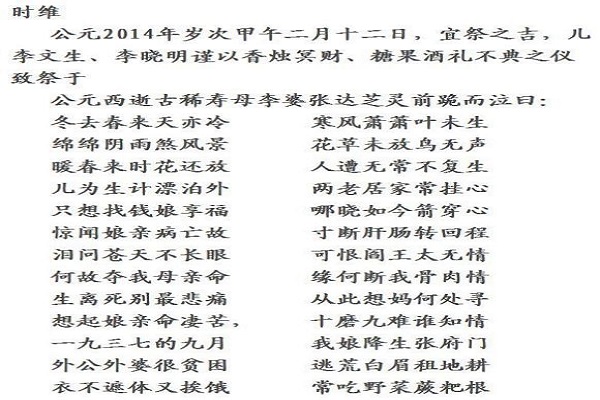 时维
公元2014年岁次甲午二月十二日，宜祭之吉，儿
李文生、李晓明谨以香烛冥财、糖果酒礼不典之仪
致祭于
公元西逝古稀寿母李婆张达芝灵前跪而泣曰：
冬去春来天亦冷 寒风萧萧叶未生
绵绵阴雨煞风景 花草未放鸟无声
暖春来时花还放 人遭无常不复生
儿为生计漂泊外 两老居家常挂心
只想找钱娘享福 哪晓如今箭穿心
惊闻娘亲病亡故 寸断肝肠转回程
泪问苍天不长眼 可恨阎王太无情
何故夺我母亲命 缘何断我骨肉情
生离死别最悲痛 从此想妈何处寻
想起娘亲命凄苦， 十磨九难谁知情
一九三七的九月 我娘降生张府门
外公外婆很贫困 逃荒白眉租地耕
衣不遮体又挨饿 常吃野菜蕨粑根